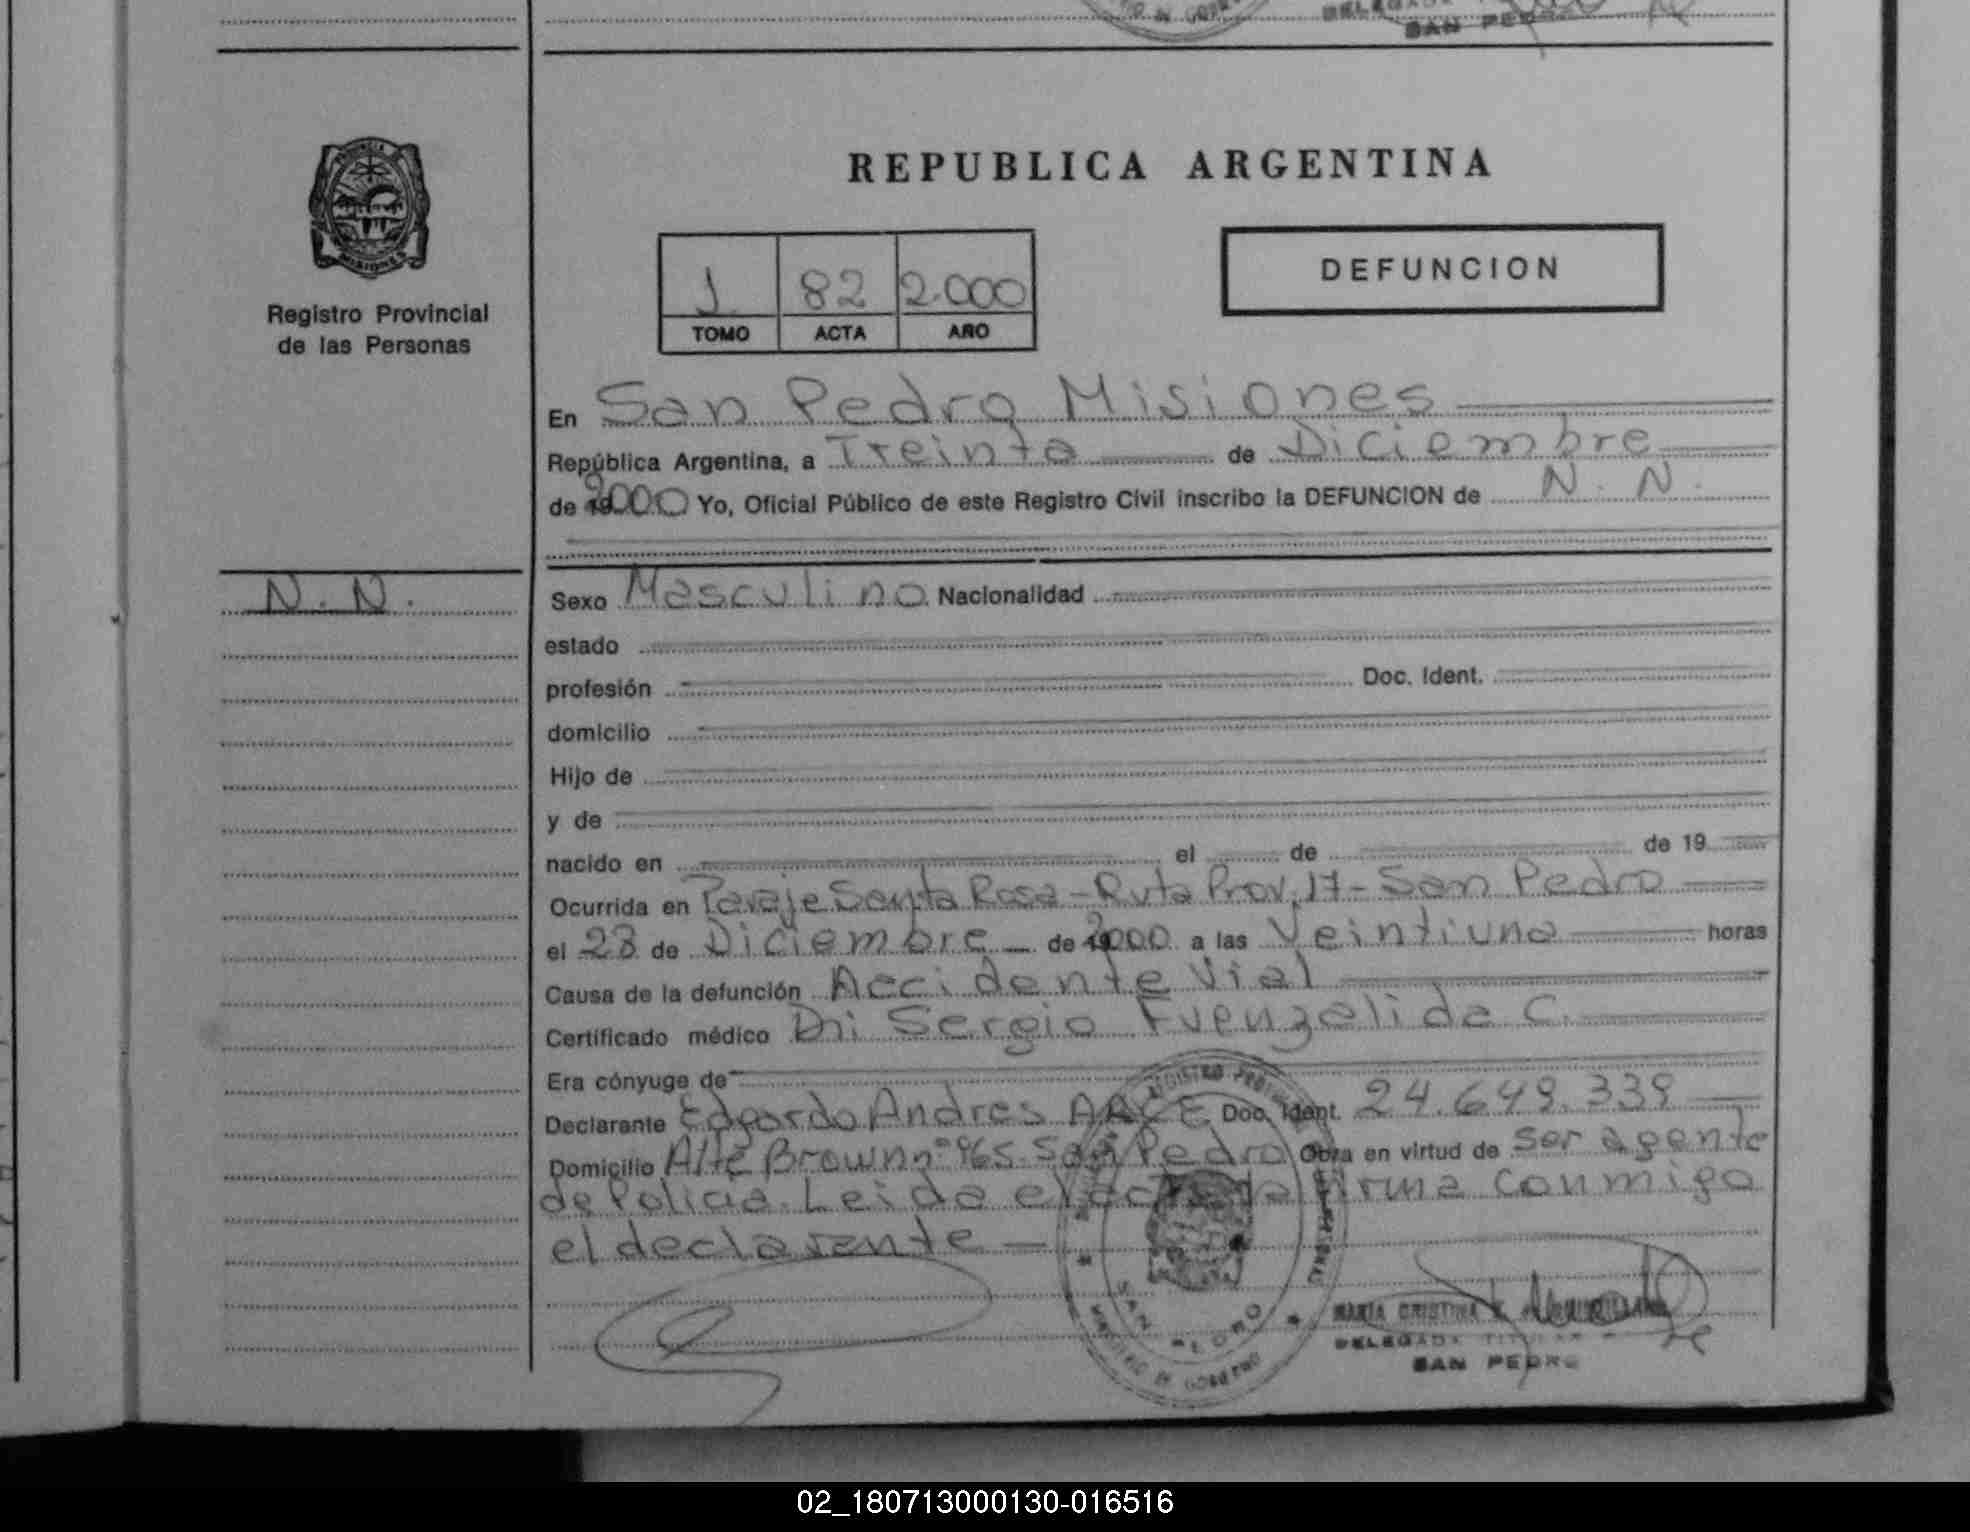 SAN PEDRO
REPUBLICA ARGENTINA
DEFUNCION
1 82 2.000
TOMO ACTA AÑO
MISIONES
Registro Provincial
de las Personas
En San Pedro Misiones
República Argentina, a Treinta de Diciembre
de 2000 Yo, Oficial Público de este Registro Civil inscribo la DEFUNCION de N. N.
N. N.
Sexo Masculino Nacionalidad
estado
profesión Doc. Ident.
domicilio
Hijo de
y de
nacido en el de de 19
Ocurrida en Paraje Santa Rosa - Ruta Prov. 17 - San Pedro
el 28 de Diciembre de 2000 a las Veintiuna horas
Causa de la defunción Accidente Vial
Certificado médico Dr: Sergio Fuenzalida C.
Era cónyuge de
Declarante Edgardo Andres ARCE Doc. Ident. 24.649.339
Domicilio Alte Brown nº 965 San Pedro Obra en virtud de ser agente
de Policia. Leida el acta la firma conmigo
el declarante
SAN PEDRO
MINISTERIO DE GOBIERNO
MARIA CRISTINA
DELEGADA TITULAR
SAN PEDRO
02_180713000130-016516